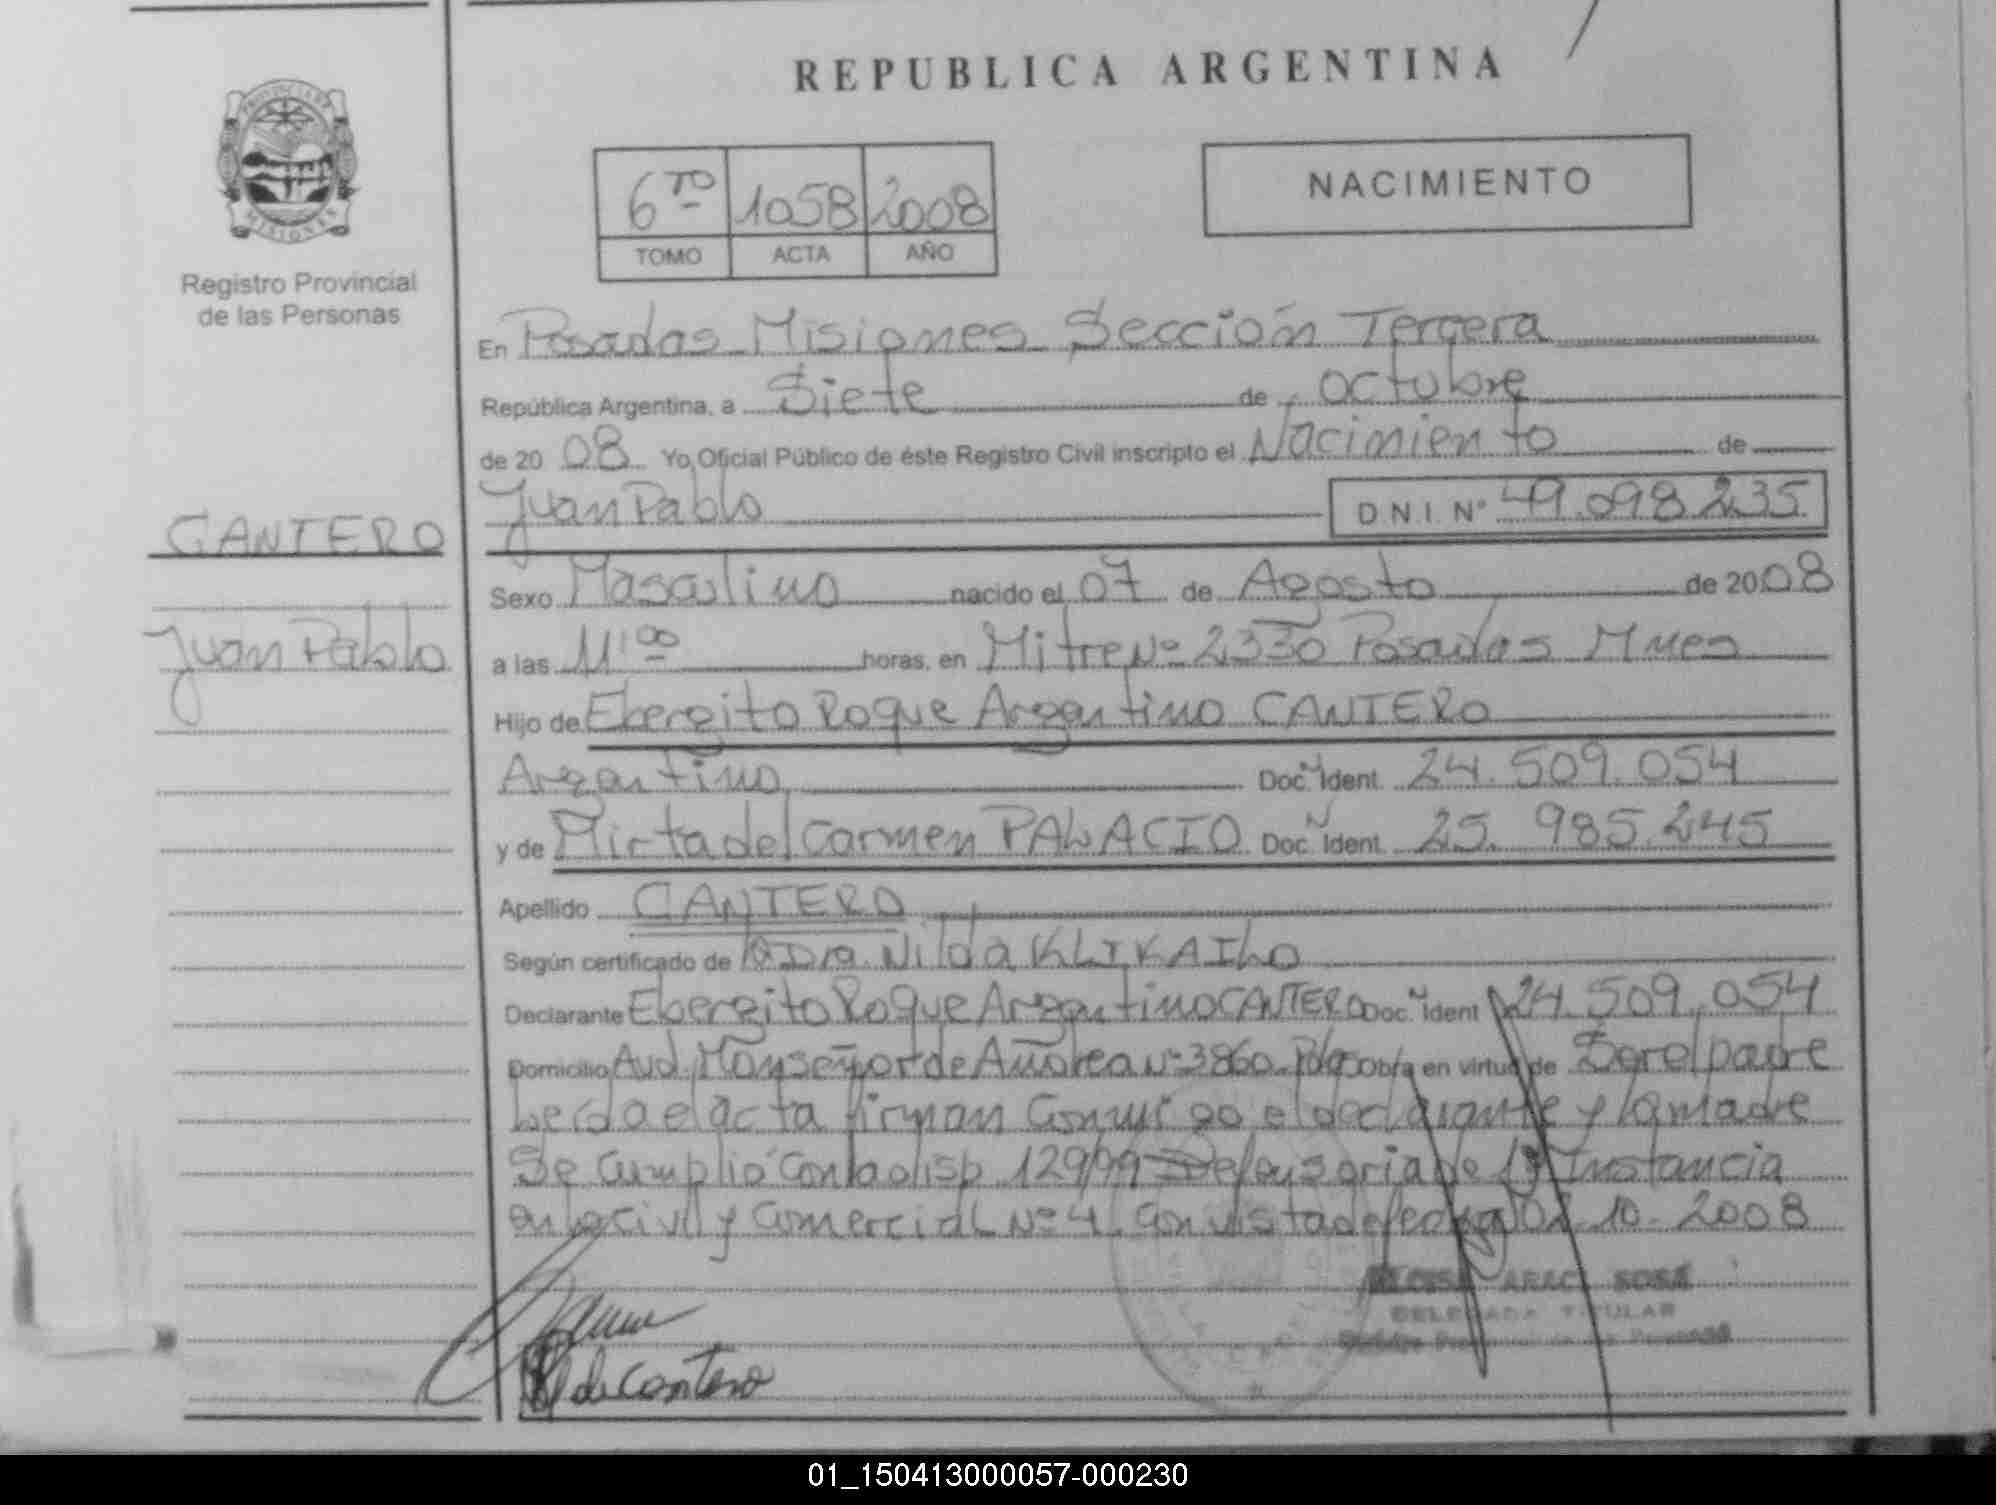 REPUBLICA ARGENTINA
PROVINCIA DE
MISIONES
Registro Provincial
de las Personas
6TO 1058 2008
TOMO ACTA AÑO
NACIMIENTO
En Posadas Misiones Sección Tercera
República Argentina, a Siete de octubre
de 20 08 Yo, Oficial Público de éste Registro Civil inscripto el Nacimiento de
Juan Pablo D.N.I. Nº 49.098.235.
CANTERO
Juan Pablo
Sexo Masculino nacido el 07 de Agosto de 2008
a las 11'00 horas, en Mitre Nº 2330 Posadas Mnes
Hijo de Ebergito Roque Argentino CANTERO
Argentino Doc. Ident. 24.509.054
y de Mirta del Carmen PALACIO Doc. Ident. 25.985.245
Apellido CANTERO
Según certificado de Dra. Nilda KLIKAILO
Declarante Ebergito Roque Argentino CANTERO Doc. Ident 24.509.054
Domicilio Avd. Monseñor de Andrea Nº 3860. Pdas Obra en virtud de Ser el padre
Leída el acta firman Conmigo el declarante y la madre
Se Cumplió Con la disp. 129/99 Defensoria de 1ª Instancia
en lo civil y Comercial Nº 4. Con vista de fecha 02-10-2008
ARACI SOSA
DELEGADA TITULAR
de Cantero
01_150413000057-000230